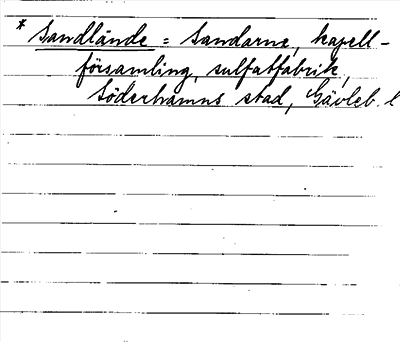 * Sandlände = Sandarne, kapell-
församling, sulfatfabrik,
Söderhamns stad, Gävleb. l